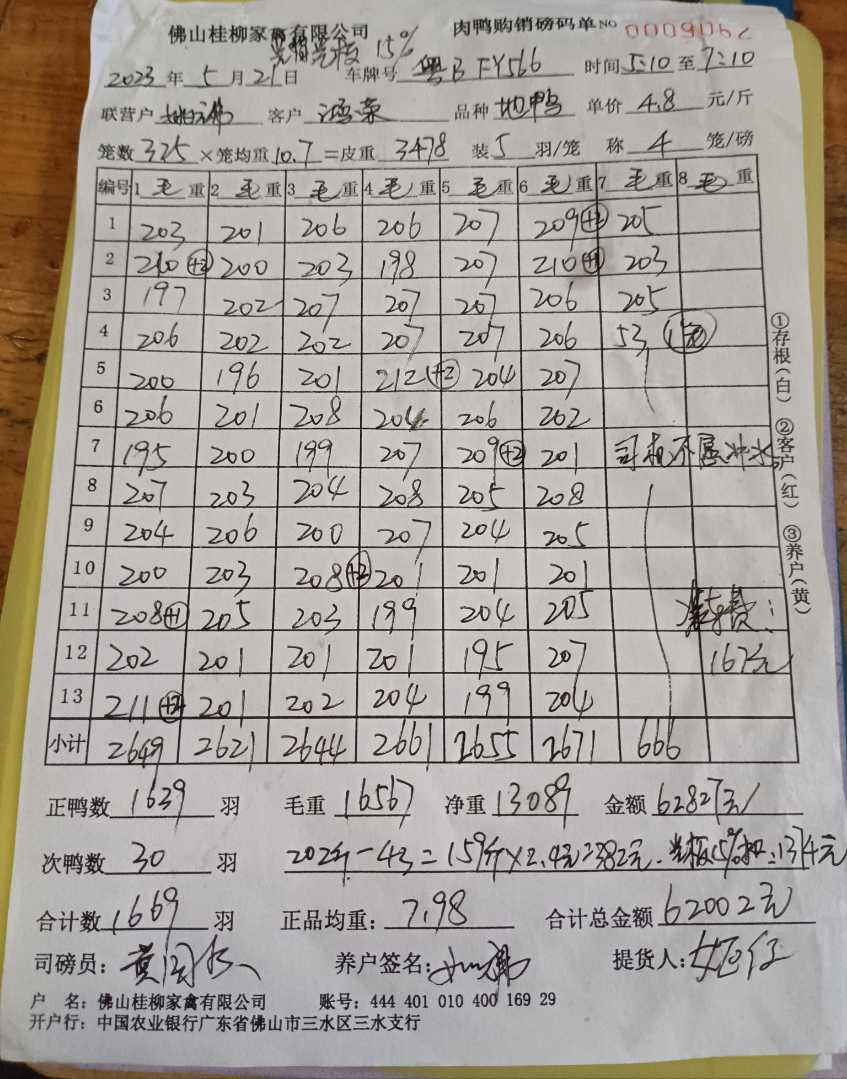 佛山桂柳家禽有限公司 肉鸭购销磅码单 NO 0009062
15%
2023 年 5 月 21 日 车牌号 粤B FY566 时间 5:10 至 7:10
联营户 客户 鸿荣 品种 地鸭 单价 4.8 元/斤
笼数 325 ×笼均重 10.7 =皮重 3478 装 5 羽/笼 称 4 笼/磅
编号 1 毛 重 2 毛 重 3 毛 重 4 毛 重 5 毛 重 6 毛 重 7 毛 重 8 毛 重
1 203 201 206 206 207 209 205
2 210 +2 200 203 198 207 210 203
3 197 202 207 207 207 206 205
4 206 202 202 207 207 206 53
5 200 196 201 212 +2 204 207
6 206 201 208 204 206 202
7 195 200 199 207 209 +2 201 司机不愿冲水
8 207 203 204 208 205 208
9 204 206 200 207 204 205
10 200 203 208 +2 201 201 201
11 208 +1 205 203 199 204 205
12 202 201 201 201 195 207 167元
13 211 +2 201 202 204 199 204
小计 2649 2621 2644 2661 2655 2671 666
正鸭数 1639 羽 毛重 16567 净重 13089 金额 62827元
次鸭数 30 羽 202斤-43=159斤×2.4元=382元. 15%扣=1374元
合计数 1669 羽 正品均重: 7.98 合计总金额 62002元
司磅员: 养户签名: 提货人:
户 名: 佛山桂柳家禽有限公司 账号: 444 401 010 400 169 29
开户行: 中国农业银行广东省佛山市三水区三水支行
①存根(白) ②客户(红) ③养户(黄)